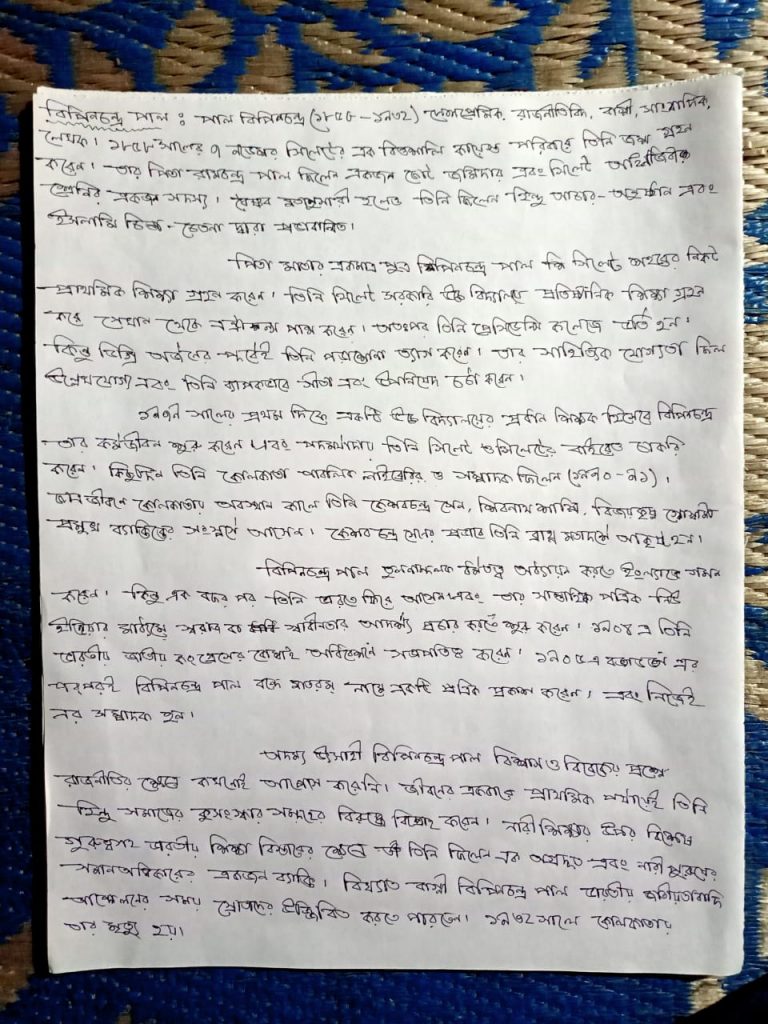 বিপিনচন্দ্র পাল : পাল বিপিনচন্দ্র (১৮৫৮ – ১৯৩২) দেশপ্রেমিক, রাজনীতিবিদ, বাগ্মী, সাংবাদিক,
লেখক। ১৮৫৮ সালের ৭ নভেম্বর সিলেটের এক বিত্তশালি কায়েস্থ পরিবারে তিনি জন্ম গ্রহন
করেন। তার পিতা রামচন্দ্র পাল ছিলেন একজন ছোট জমিদার এবং সিলেট আইনজীবীক
শ্রেনির একজন সদস্য। বৈষ্ণব মতানুসারী হলেও তিনি ছিলেন হিন্দু আচার-অনুষ্ঠান এবং
ইসলামি চিন্তা-চেতনা দ্বারা প্রভাবান্বিত।
পিতা মাতার একমাত্র পুত্র বিপিনচন্দ্র পাল সিলেট শহরের নিকট
প্রাথমিক শিক্ষা গ্রহন করেন। তিনি সিলেট সরকারি উচ্চ বিদ্যালয়ে প্রতিষ্ঠানিক শিক্ষা গ্রহন
করে সেখান থেকে পাস করেন। অতঃপর তিনি প্রেসিডেন্সি কলেজে ভর্তি হন।
কিন্তু ডিগ্রি অর্জনের পূর্বেই তিনি পড়াশোনা ত্যাগ করেন। তার সাহিত্যিক যোগ্যতা ছিল
উল্লেখযোগ্য এবং তিনি ব্যাপকভাবে গীতা এবং উপনিষদ চর্চা করেন।
১৮৭৯ সালের প্রথম দিকে একটি উচ্চ বিদ্যালয়ের প্রধান শিক্ষক হিসেবে বিপিনচন্দ্র
তার কর্মজীবন শুরু করেন এবং পদমর্যাদায় তিনি সিলেট ও সিলেটের বাইরেও চাকরি
করেন। কিছুদিন তিনি কোলকাতা পাবলিক লাইব্রেরির ও সম্পাদক ছিলেন (১৮৯০-৯১)।
ছাত্র জীবনে কোলকাতায় অবস্থান কালে তিনি কেশবচন্দ্র সেন, শিবনাথ শাস্ত্রি, বিজয়কৃষ্ণ গোস্বামী
প্রমুখ ব্যাক্তিত্বের সংস্পর্শে আসেন। কেশব চন্দ্র সেনের প্রভাবে তিনি ব্রাহ্ম মতাদর্শে আকৃষ্ট হন।
বিপিনচন্দ্র পাল তুলনামূলক ধর্মতত্ত্ব অধ্যয়ন করতে ইংল্যান্ডে গমন
করেন। কিন্তু এক বছর পর তিনি ভারতে ফিরে আসেন এবং তার সাপ্তাহিক পত্রিক নিউ
ইন্ডিয়ার মাধ্যমে স্বরাজ বা স্বাধীনতার আদর্শ প্রচার করতে শুরু করেন। ১৯০৪ এ তিনি
ভারতীয় জাতীয় কংগ্রেসের বোম্বাই অধিবেশনে সভাপতিত্ব করেন। ১৯০৫ এ বঙ্গভঙ্গ এর
পরপরই বিপিনচন্দ্র পাল বন্দে মাতরম্ নামে একটি পত্রিক প্রকাশ করেন। এবং নিজেই
এর সম্পাদক হন।
অদম্য উৎসাহী বিপিনচন্দ্র পাল বিশ্বাস ও বিবেকের প্রশ্নে
রাজনীতির ক্ষেত্রে কখনোই আপোস করেননি। জীবনের একবারে প্রাথমিক পর্যায়েই তিনি
হিন্দু সমাজের কুসংস্কার সমূহের বিরুদ্ধে বিদ্রোহ করেন। নারী শিক্ষার উপর বিশেষ
গুরুত্বসহ ভারতীয় শিক্ষা বিস্তারের ক্ষেত্রে তিনি ছিলেন এক অগ্রদূত এবং নারী পুরুষের
সমান অধিকারের একজন ব্যাক্তি। বিখ্যাত বাগ্মী বিপিনচন্দ্র পাল ভারতীয় জাতীয়তাবাদি
আন্দোলনের সময় শ্রোতাদের উজ্জিবিত করতে পারতেন। ১৯৩২ সালে কোলকাতায়
তার মৃত্যু হয়।